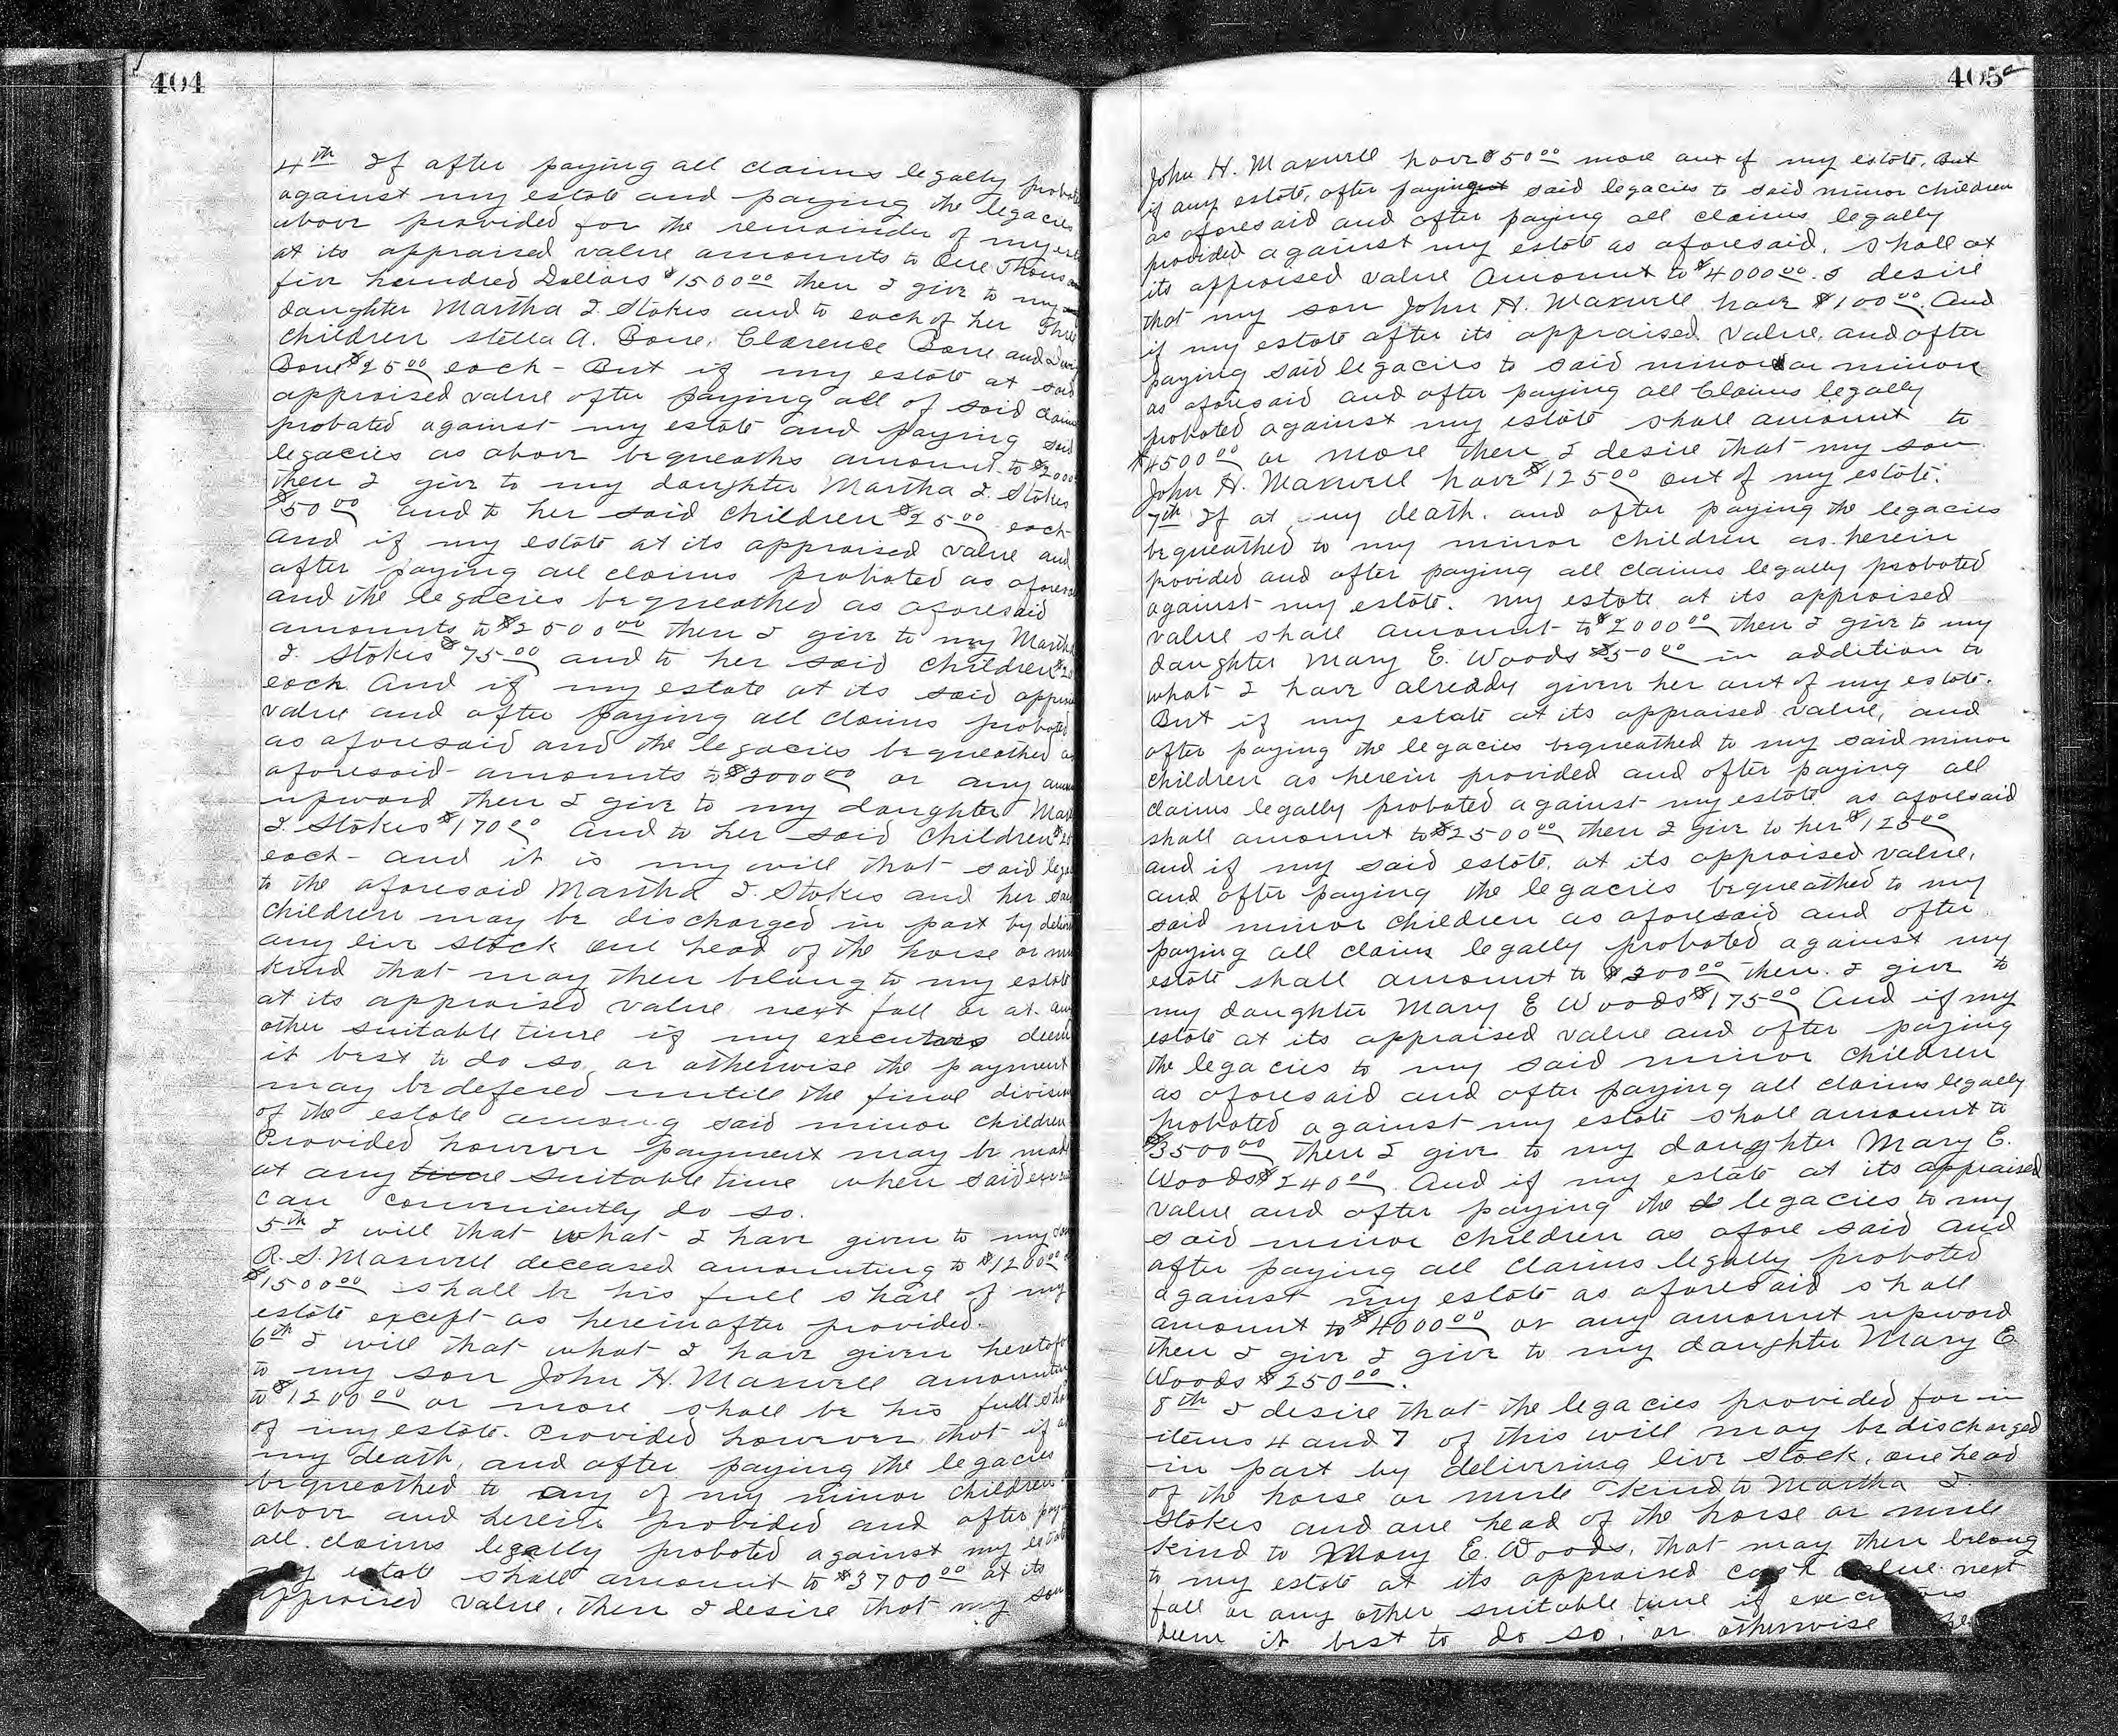 404
4th If after paying all claims legally
against my estate and paying the legacies
above provided for the remainder of my
at its appraised value amounts to One
five hundred Dollars $1500.00 then I give to my
daughter Martha I. Stokes and to each of her
children Stella A. Bone, Clarence Bone and
Bone $25.00 each - But if my estate at said
appraised value after paying all of said
probated against my estate and paying said
legacies as above bequeaths amount to
then I give to my daughter Martha I. Stokes
$50.00 and to her said children $25.00 each
And if my estate at its appraised value and
after paying all claims probated as
and the legacies bequeathed as aforesaid
amounts to $2500.00 then I give to my
I. Stokes $75.00 and to her said children
each And if my estate at its said
value and after paying all claims probated
as aforesaid and the legacies bequeathed
aforesaid amounts to $3000.00 or any
upward then I give to my daughter
I. Stokes $170.00 and to her said children
each - and it is my will that said
to the aforesaid Martha I. Stokes and her
children may be discharged in part by
any live stock one head of the horse or
kind that may then belong to my estate
at its appraised value next fall or at any
other suitable time if my executors deem
it best to do so, or otherwise the payment
may be defered untill the final division
of the estate among said minor children
Provided however payment may be
at any time suitable time when said
can conveniently do so.
5th I will that what I have given to my
R. S. Maxwell deceased amounting to $1200.00
$1500.00 shall be his full share of my
estate except as hereinafter provided.
6th I will that what I have given
to my son John H. Maxwell
to $1200.00 or more shall be his full
of my estate. Provided however that if
my death, and after paying the legacies
bequeathed to any of my minor children
above and herein provided and after
all claims legally probated against my
estate shall amount to $3700.00 at its
appraised value, then I desire that my son
405
John H. Maxwell have $50.00 more out of my estate. But
if any estate, after paying said legacies to said minor children
as aforesaid and after paying all claims legally
provided against my estate as aforesaid, shall at
its appraised value amount to $4000.00 I desire
that my son John H. Maxwell have $100.00. And
if my estate after its appraised value, and after
paying said legacies to said minor or minors
as aforesaid and after paying all claims legally
probated against my estate shall amount to
$4500.00 or more then I desire that my son
John H. Maxwell have $125.00 out of my estate.
7th If at my death, and after paying the legacies
bequeathed to my minor children as herein
provided and after paying all claims legally probated
against my estate. my estate at its appraised
value shall amount to $2000.00 then I give to my
daughter Mary E. Woods $50.00 in addition to
what I have alreddy given her out of my estate.
But if my estate at its appraised value, and
after paying the legacies bequeathed to my said minor
children as herein provided and after paying all
claims legally probated against my estate as aforesaid
shall amount to $2500.00 then I give to her $125.00
and if my said estate, at its appraised value,
and after paying the legacies bequeathed to my
said minor children as aforesaid and after
paying all claims legally probated against my
estate shall amount to $300.00 then I give to
my daughter Mary E Woods $175.00 And if my
estate at its appraised value and after paying
the legacies to my said minor children
as aforesaid and after paying all claims legally
probated against my estate shall amount to
$3500.00 then I give to my daughter Mary E.
Woods $240.00. And if my estate at its appraised
value and after paying the legacies to my
said minor children as afore said and
after paying all claims legally probated
against my estate as aforesaid shall
amount to $4000.00 or any amount upward
then I give I give to my daughter Mary E
Woods $250.00.
8th I desire that the legacies provided for in
items 4 and 7 of this will may be discharged
in part by delivering live stock, one head
of the horse or mule kind to Martha I.
Stokes and one head of the horse or mule
kind to Mary E. Woods, that may then belong
to my estate at its appraised cash value next
fall or any other suitable time if executors
deem it best to do so, or otherwise